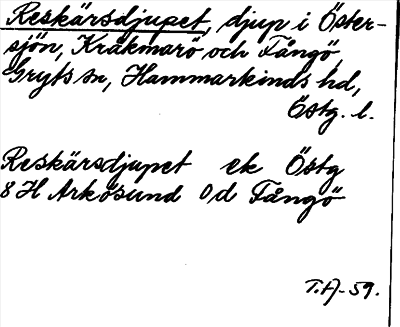 Reskärsdjupet, djup i Öster-
sjön, Kråkmarö och Fångö,
Gryts sn, Hammarkinds hd,
Östg. l.
Reskärsdjupet ek Östg
8 H Arkösund 0d Fångö
T.A-59.